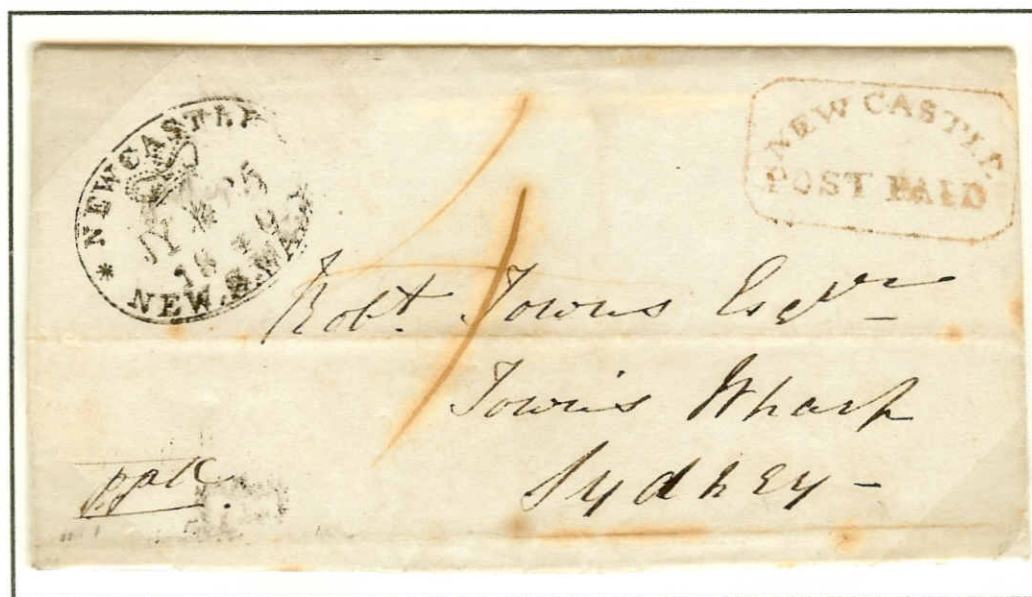 * NEWCASTLE *
JY * 25
NEW.S.WALES
NEW CASTLE
POST PAID
Robt. Towns Esqre
Towns Wharf
Sydney -
paid.